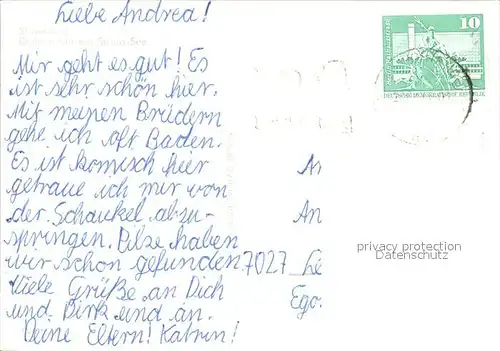 Liebe Andrea!
Mir geht es gut! Es
ist sehr schön hier.
Mit meinen Brüdern
gehe ich oft Baden.
Es ist komisch hier
getraue ich mir von
der Schaukel abzu-
springen. Pilze haben
wir schon gefunden.
Viele Grüße an Dich
und Dirk und an
Deine Eltern! Katrin!
10
An
7027 Le
Ego
privacy protection
Datenschutz